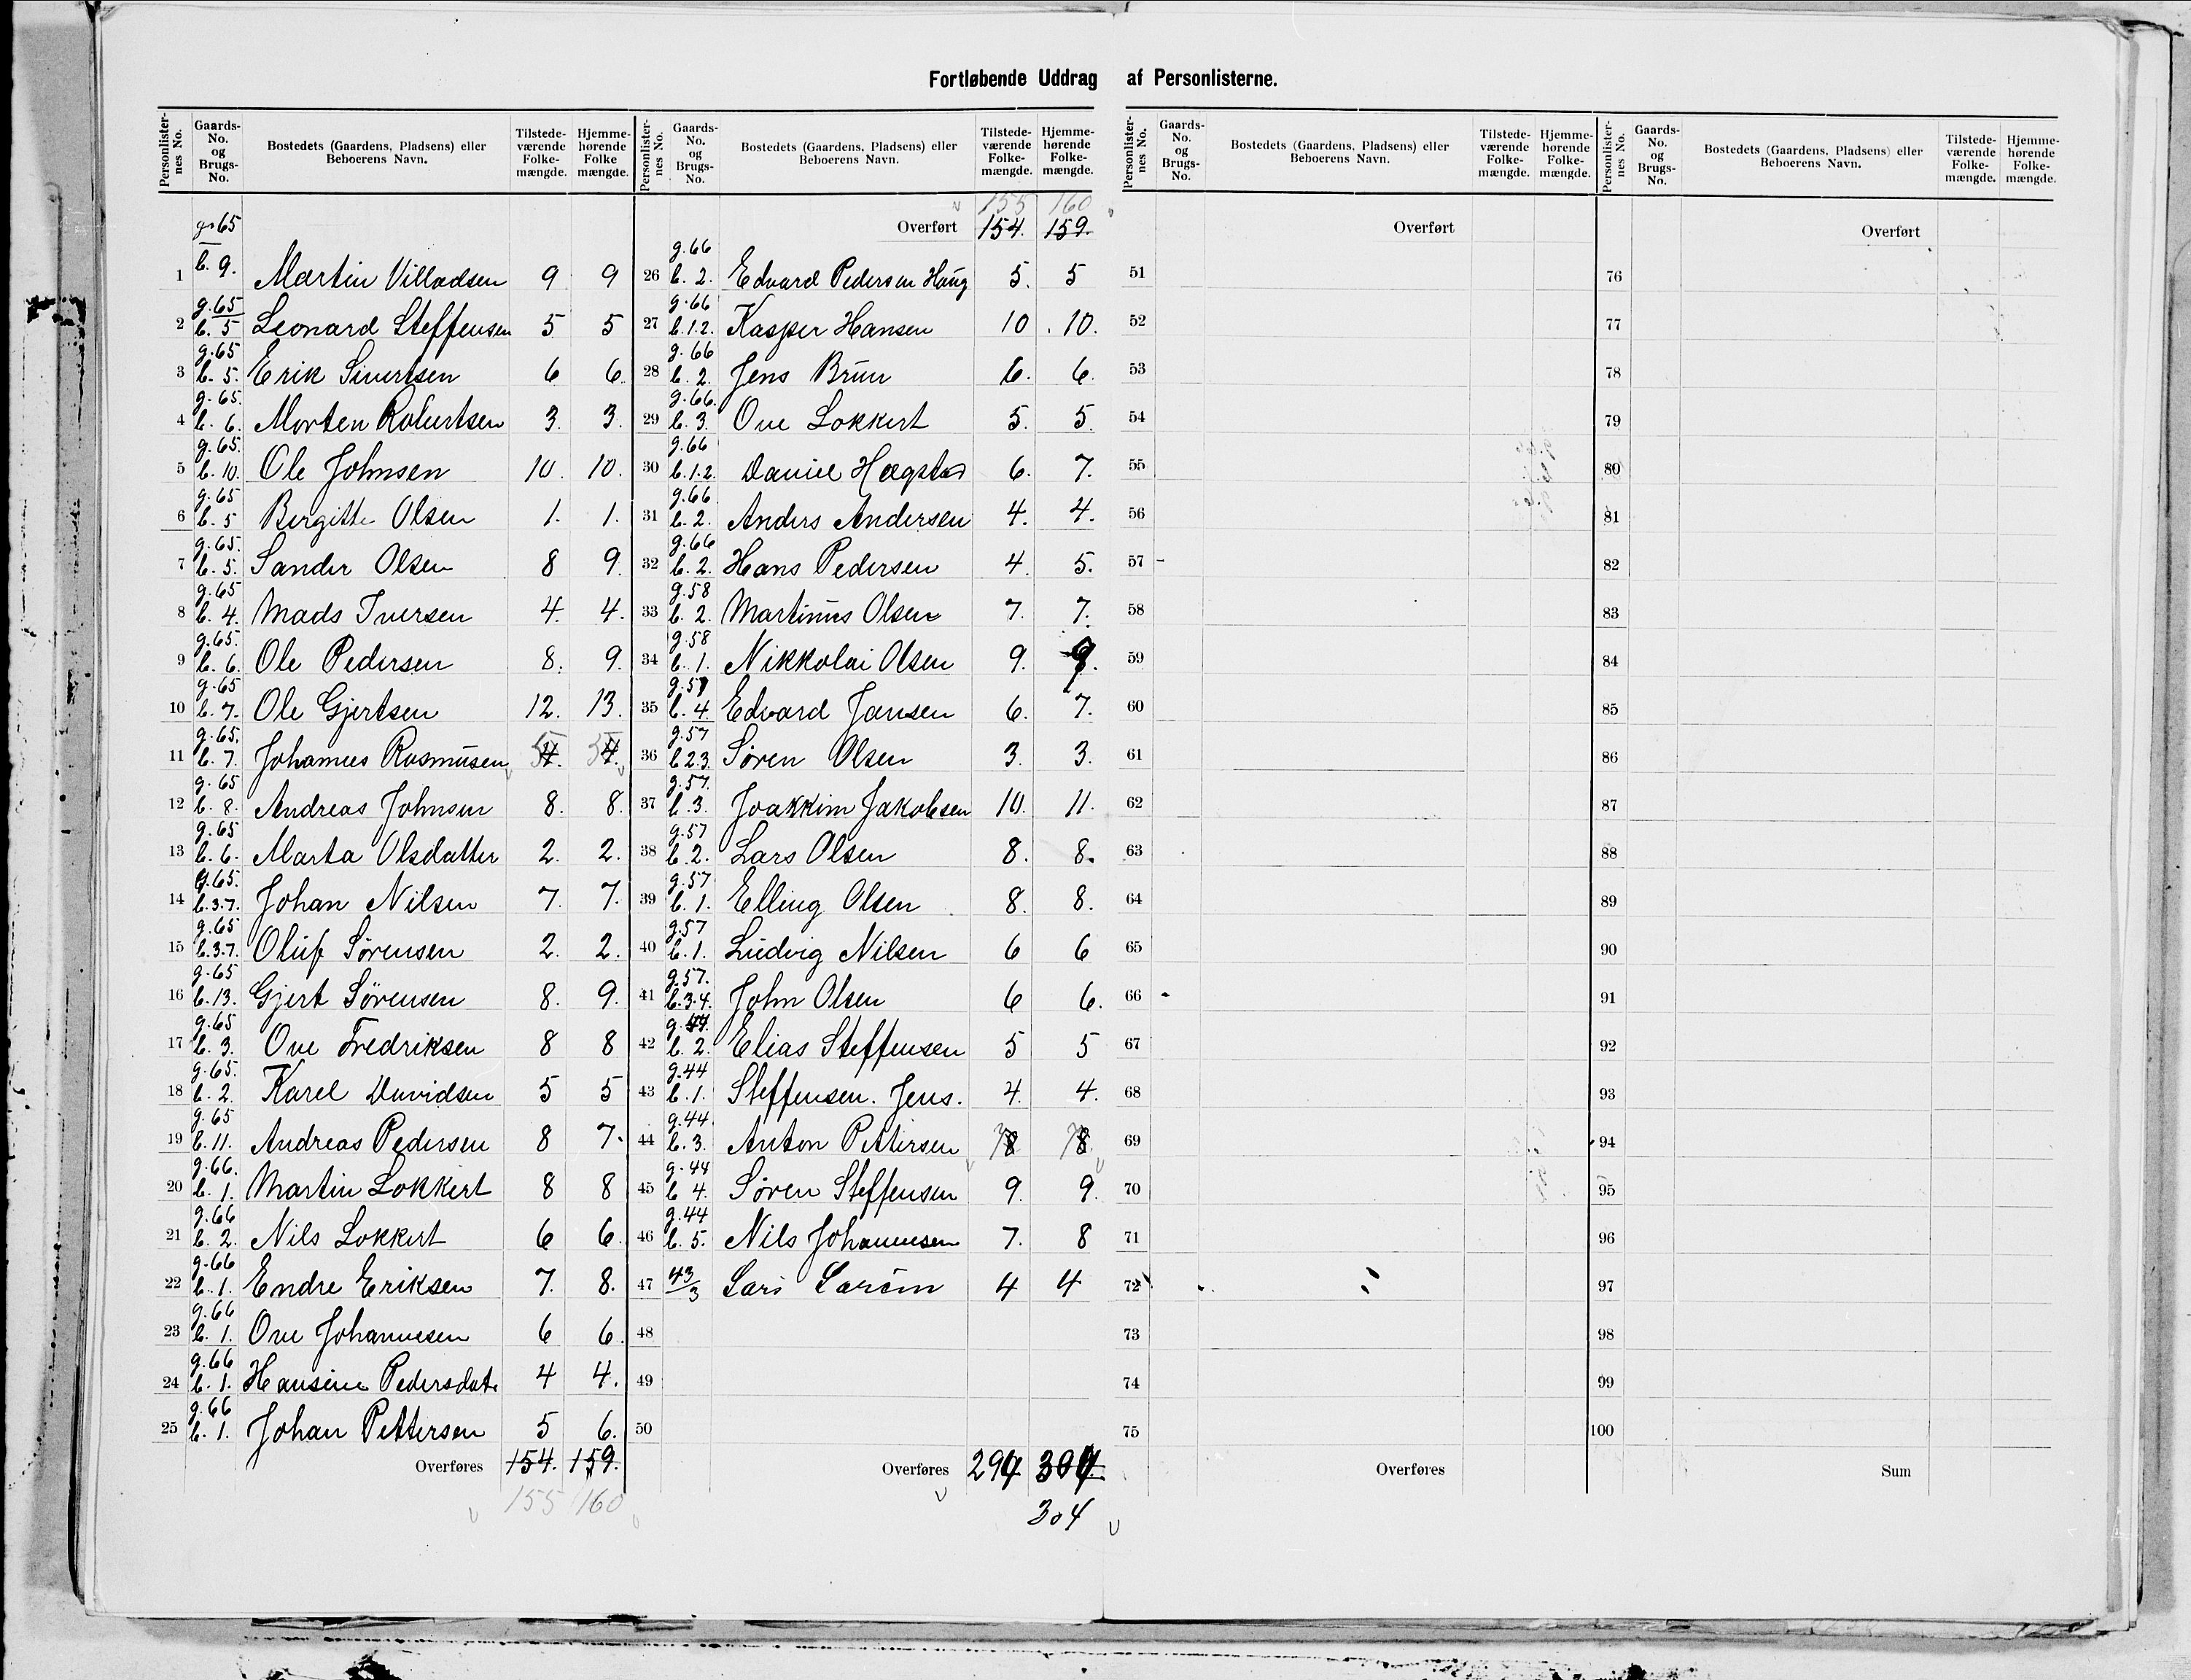 Fortløbende Uddrag af Personlisterne.
Personlisternes No. Gaards-No. og Brugs-No. Bostedets (Gaardens, Pladsens) eller Beboerens Navn. Tilstedeværende Folkemængde. Hjemmehørende Folkemængde.
g. 65 b. 9.
1 Martin Villadsen 9 9
2 g. 65 b. 5 Leonard Steffensen 5 5
3 g. 65 b. 5. Erik Sivertsen 6 6.
4 g. 65. b. 6. Morten Robertsen 3. 3.
5 g. 65. b. 10. Ole Johnsen 10. 10.
6 g. 65 b. 5 Bergitte Olsen 1. 1.
7 g. 65. b. 5. Sander Olsen 8 9.
8 g. 65 b. 4. Mads Iversen 4. 4.
9 g. 65. b. 6. Ole Pedersen 8. 9.
10 g. 65 b. 7. Ole Gjertsen 12. 13.
11 g. 65. b. 7. Johannes Rasmusen 5 4. 5 4.
12 g. 65 b. 8. Andreas Johnsen 8. 8.
13 g. 65 b. 6. Marta Olsdatter 2. 2.
14 g. 65. b. 3.7. Johan Nilsen 7. 7.
15 g. 65 b. 3.7. Oluf Sørensen 2. 2.
16 g. 65 b. 13. Gjert Sørensen 8. 9.
17 g. 65 b. 3. Ove Fredriksen 8 8
18 g. 65. b. 2. Karel Davidsen 5 5
19 g. 65 b. 11. Andreas Pedersen 8 7.
20 g. 66. b. 1. Martin Lokkert 8 8
21 g. 66 b. 2. Nils Lokkert 6 6.
22 g. 66 b. 1. Endre Eriksen 7. 8.
23 g. 66 b. 1. Ove Johannesen 6 6.
24 g. 66 b. 1. Hansine Pedersdat. 4 4.
25 g. 66 b. 1. Johan Pettersen 5 6.
Overføres 154. 159.
155 160
Personlisternes No. Gaards-No. og Brugs-No. Bostedets (Gaardens, Pladsens) eller Beboerens Navn. Tilstedeværende Folkemængde. Hjemmehørende Folkemængde.
155 160
Overført 154. 159.
26 g. 66 b. 2. Edvard Pedersen Haug 5. 5
27 g. 66 b. 1.2. Kasper Hansen 10 10.
28 g. 66 b. 2. Jens Brun 6. 6.
29 g. 66. b. 3. Ove Lokkert 5. 5.
30 g. 66 b. 1.2. Daniel Hægstad 6. 7.
31 g. 66 b. 2. Anders Andersen 4. 4.
32 g. 66 b. 2. Hans Pedersen 4. 5.
33 g. 58 b. 2. Martinus Olsen 7. 7.
34 g. 58 b. 1. Nikkolai Olsen 9. 9.
35 g. 57 b. 4. Edvard Jansen 6. 7.
36 g. 57 b. 2.3. Søren Olsen 3. 3.
37 g. 57. b. 3. Joakkim Jakobsen 10. 11.
38 g. 57 b. 2. Lars Olsen 8. 8.
39 g. 57 b. 1. Elling Olsen 8. 8.
40 g. 57 b. 1. Ludvig Nilsen 6 6
41 g. 57. b. 3.4. John Olsen 6 6.
42 g. 44. b. 2. Elias Steffensen 5 5
43 g. 44 b. 1. Steffensen. Jens. 4. 4.
44 g. 44 b. 3. Anton Pettersen 7 8 7 8
45 g. 44 b 4. Søren Steffensen 9. 9.
46 g. 44 b. 5. Nils Johannesen 7. 8
47 43/3 Lars 4 4
48
49
50
Overføres 294 304.
304
Personlisternes No. Gaards-No. og Brugs-No. Bostedets (Gaardens, Pladsens) eller Beboerens Navn. Tilstedeværende Folkemængde. Hjemmehørende Folkemængde.
Overført
51
52
53
54
55
56
57
58
59
60
61
62
63
64
65
66
67
68
69
70
71
72
73
74
75
Overføres
Personlisternes No. Gaards-No. og Brugs-No. Bostedets (Gaardens, Pladsens) eller Beboerens Navn. Tilstedeværende Folkemængde. Hjemmehørende Folkemængde.
Overført
76
77
78
79
80
81
82
83
84
85
86
87
88
89
90
91
92
93
94
95
96
97
98
99
100
Sum